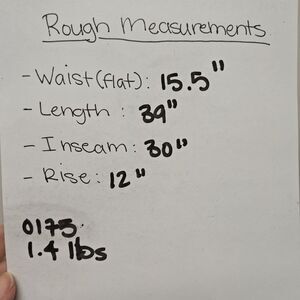 Rough Measurements
- Waist(flat): 15.5"
- Length : 39"
- Inseam: 30"
- Rise: 12"
0175
1.4 lbs